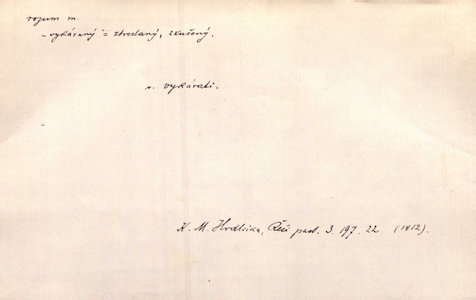 rozum m.
~ vykáraný = ztrestaný, zkušený.
v. vykárati.
K. M. Hrdlička, Řeči past. 3. 197. 22 (1812).